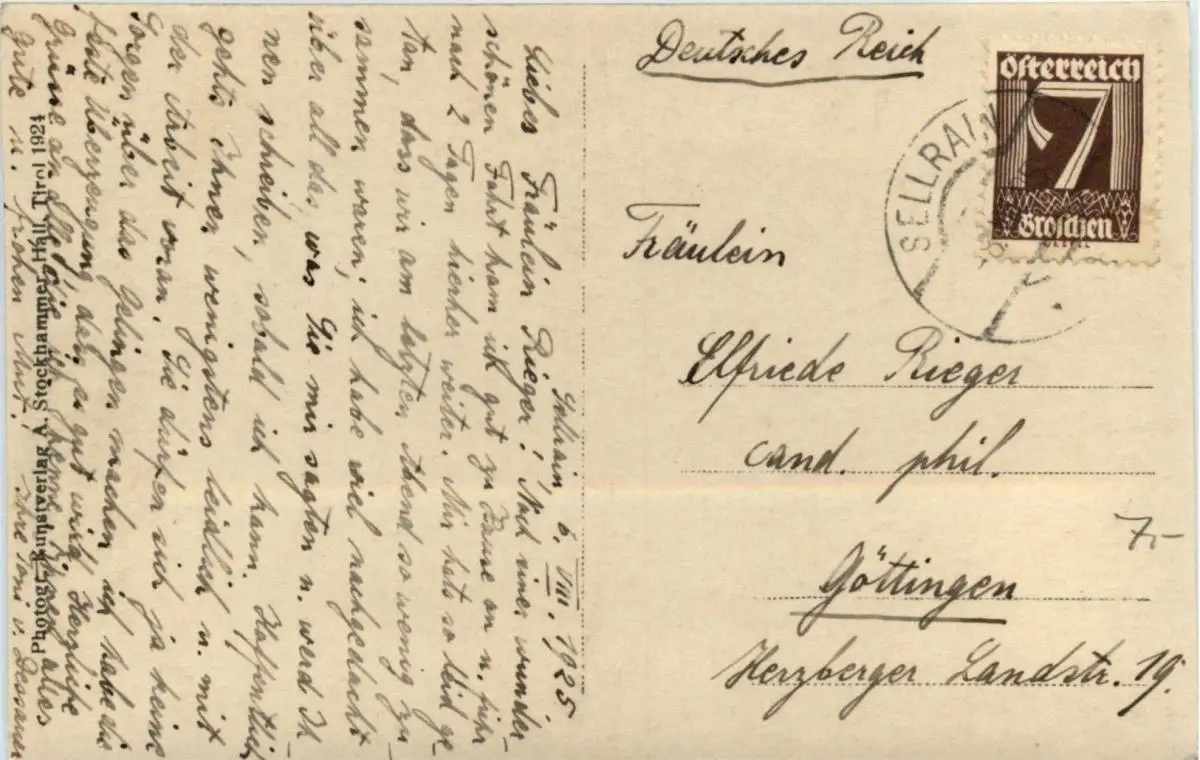 Sellrain, 6. VIII. 1925
Liebes Fräulein Rieger! Nach einer wunder-
schönen Fahrt kam ich gut zu Hause an u. fuhr
nach 2 Tagen hierher weiter. Mir hats so leid ge
tan, dass wir am letzten Abend so wenig zu
sammen waren; ich habe viel nachgedacht
über all das, was Sie mir sagten u. werd Ih
nen schreiben, sobald ich kann. Hoffentlich
gehts Ihnen wenigstens leidlich u. mit
der Arbeit voran. Sie dürfen sich ja keine
Sorgen über das Gelingen machen, ich habe die
feste Überzeugung, dass es gut wird. Herzliche
Grüsse an alle, die ich kenne, alles
Gute u. frohen Mut. Ihre Toni v. Dessauer
Photogr. Kunstverlag A. Stockhammer, Hall, Tirol 1924
Deutsches Reich
Österreich
7
Groschen
SELLRAIN
Fräulein
Elfriede Rieger
cand. phil.
7-
Göttingen
Herzberger Landstr. 19.